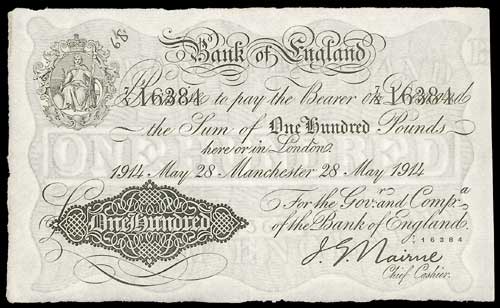 89
Bank of England
7/Z 16384 7/Z 16384
Promise to pay the Bearer on Demand
the Sum of One Hundred Pounds
here or in London
1914 May 28 Manchester 28 May 1914
For the Gov.r and Comp.a
of the Bank of England.
One Hundred
16384
J. G. Nairne
Chief Cashier.
ONE HUNDRED